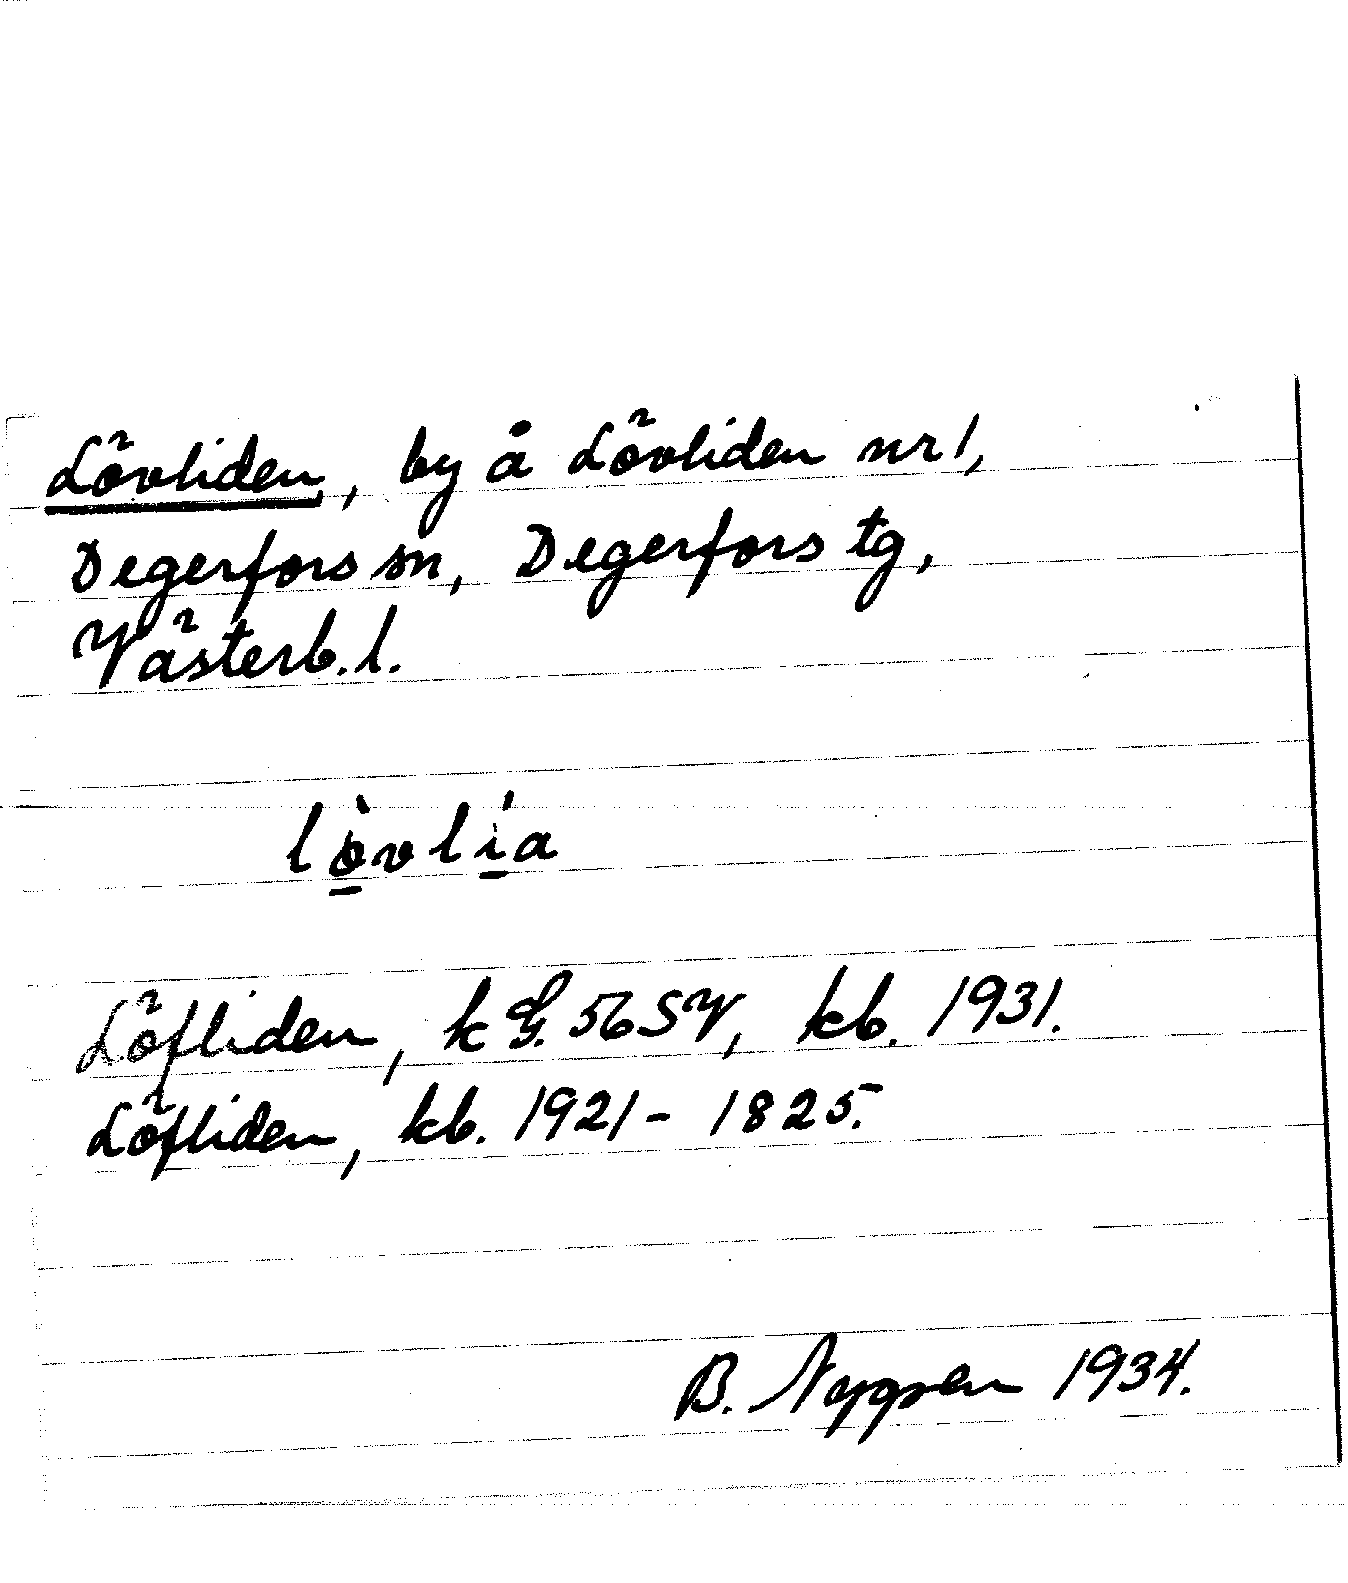 Lövliden, by å Lövliden nr 1,
Degerfors sn, Degerfors tg,
Västerb. l.
lòvlía
Löfliden, k G. 56 SV, kb. 1931.
Löfliden, kb. 1921 - 1825.
B. Nygren 1934.